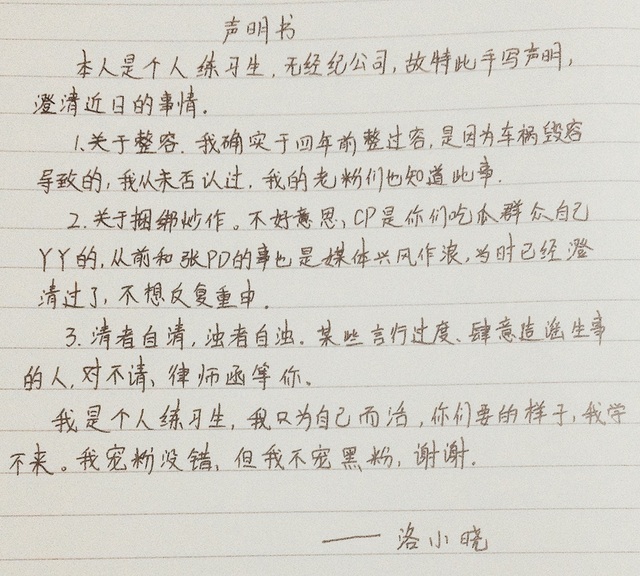 声明书
本人是个人练习生,无经纪公司,故特此手写声明,
澄清近日的事情.
1.关于整容.我确实于四年前整过容,是因为车祸毁容
导致的,我从未否认过.我的老粉们也知道此事.
2.关于捆绑炒作。不好意思,CP是你们吃瓜群众自己
YY的,从前和张PD的事也是媒体兴风作浪,当时已经澄
清过了,不想反复重申.
3.清者自清,浊者自浊.某些言行过度、肆意造谣生事
的人,对不请、律师函等你、
我是个人练习生,我只为自己而活,你们要的样子,我学
不来。我宠粉没错,但我不宠黑粉,谢谢.
——洛小晓